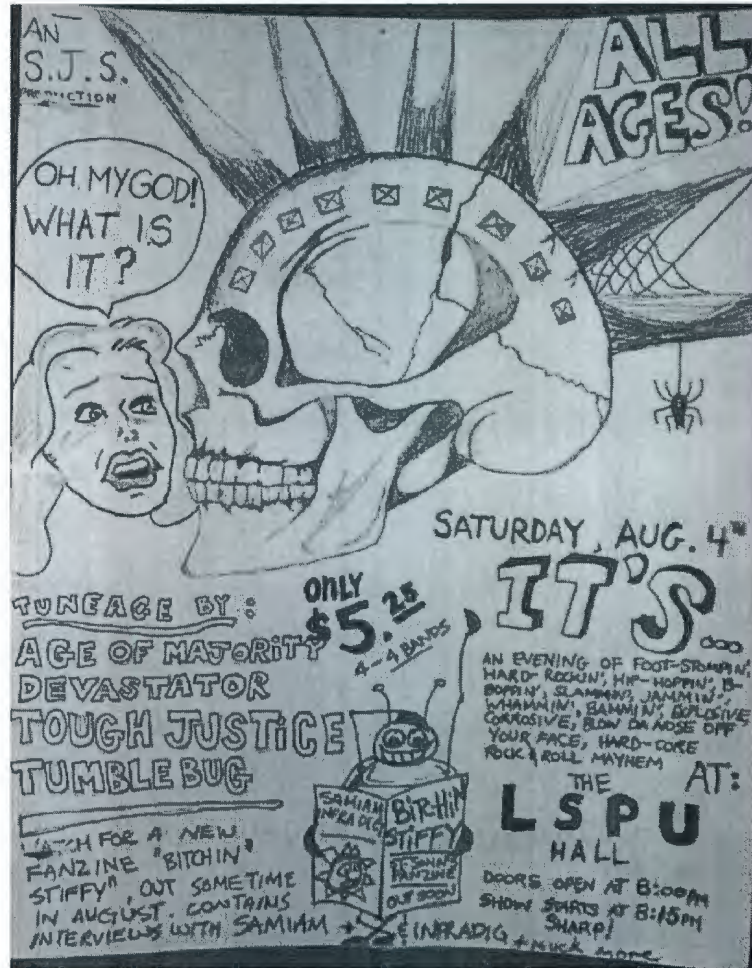 AN
S.J.S.
PRODUCTION
ALL
AGES!
OH MY GOD!
WHAT IS
IT?
SATURDAY, AUG. 4TH
IT'S...
AN EVENING OF FOOT-STOMPIN',
HARD-ROCKIN', HIP-HOPPIN', B-
BOPPIN', SLAMMIN', JAMMIN',
WHAMMIN', BAMMIN', EXPLOSIVE
CORROSIVE, BLOW DA NOSE OFF
YOUR FACE, HARD-CORE
ROCK & ROLL MAYHEM
AT:
THE
LSPU
HALL
DOORS OPEN AT 8:00PM
SHOW STARTS AT 8:15PM
SHARP!
ONLY
$5.25
4-4 BANDS
TUNEAGE BY:
AGE OF MAJORITY
DEVASTATOR
TOUGH JUSTICE
TUMBLE BUG
WATCH FOR A NEW
FANZINE "BITCHIN'
STIFFY", OUT SOMETIME
IN AUGUST. CONTAINS
INTERVIEWS WITH SAMIAM +
& INFRADIG + MUCH MORE
SAMIAM
INFRADIG
BITCHIN
STIFFY
FANZINE
OUT SOON